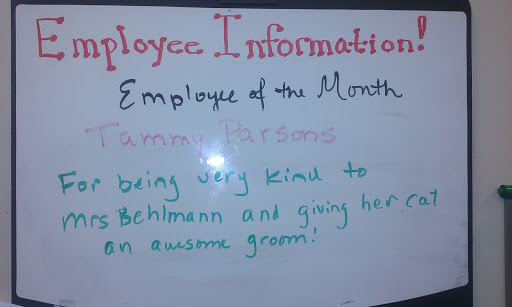 Employee Information!
Employee of the Month
Tammy Parsons
For being very kind to
Mrs Behlmann and giving her cat
an awesome groom!